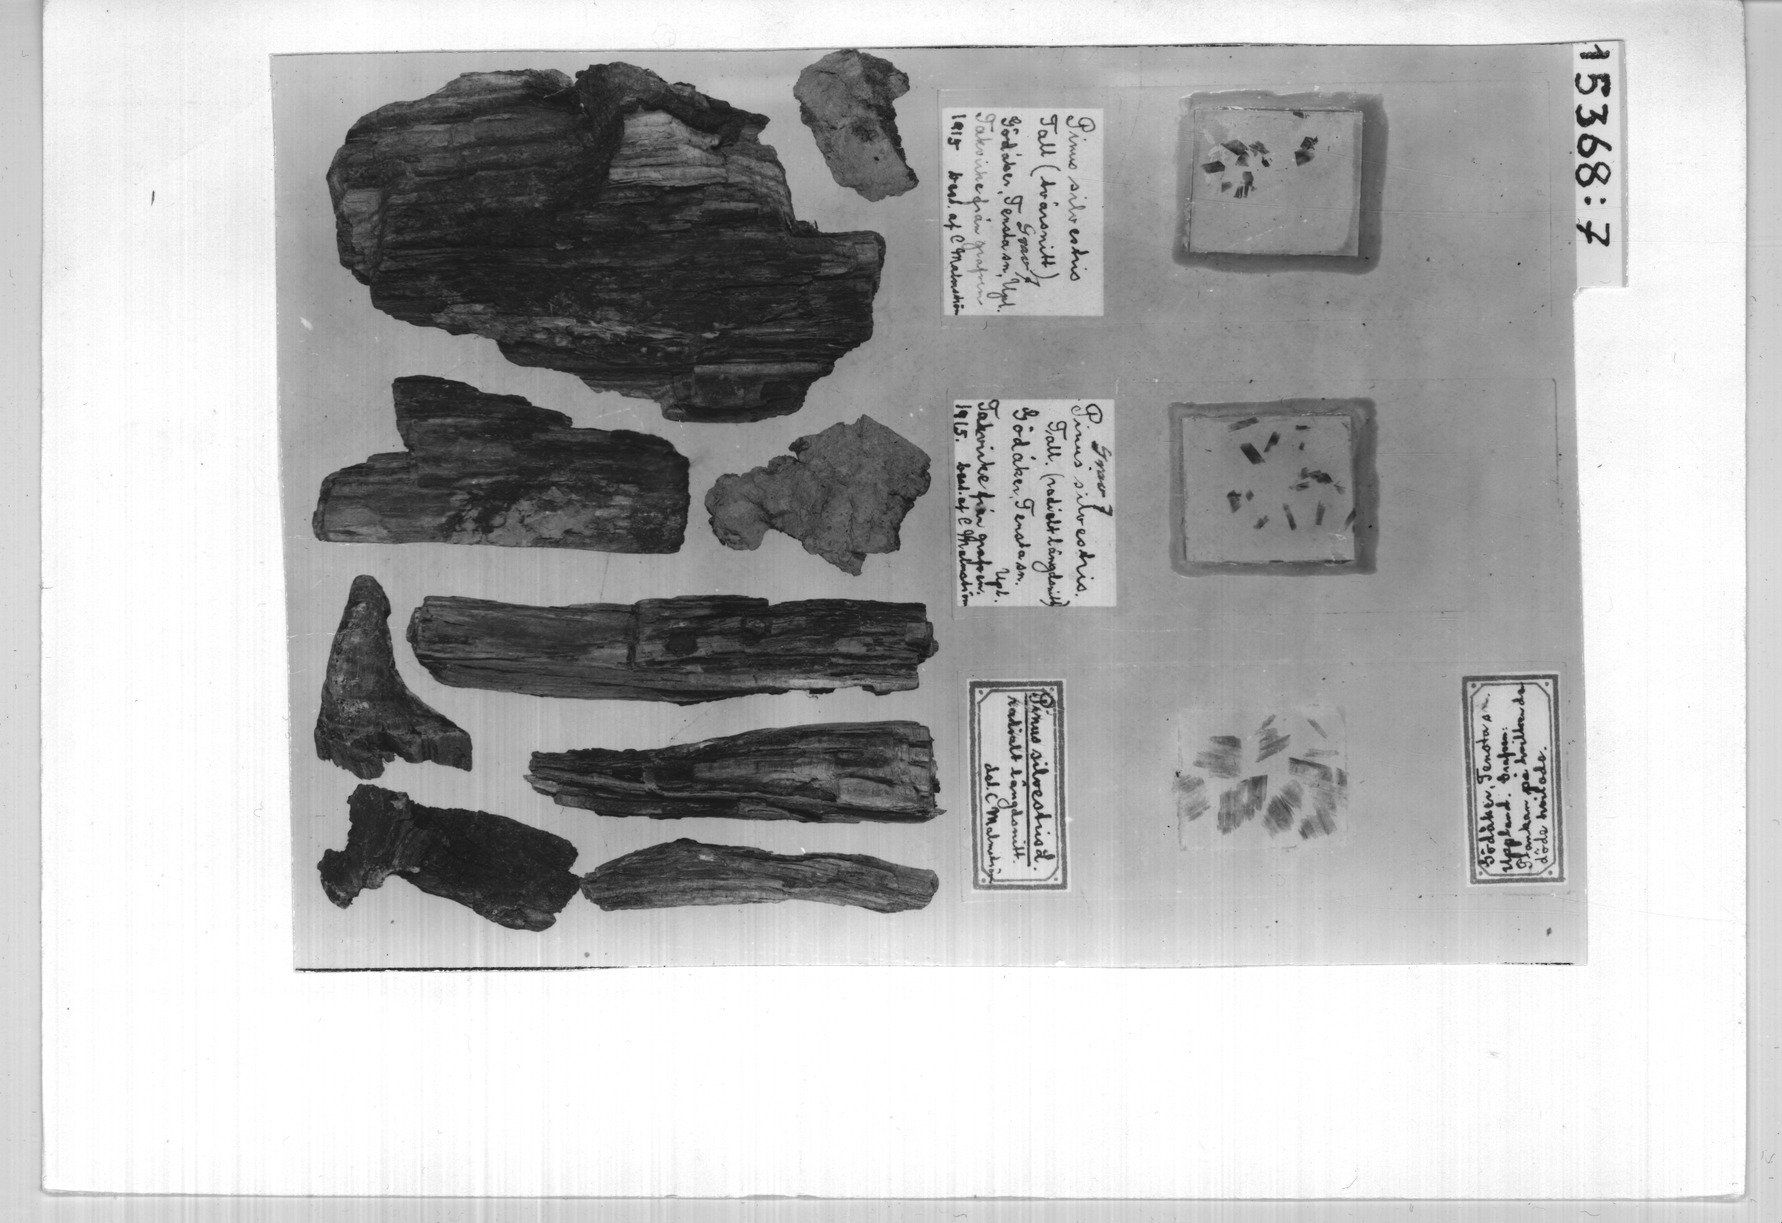 15368:7
Pinus silvestris
Tall (tvärsnitt)
Grav 7
Gödåker, Tensta sn, Upl.
Takvirke från grafven
1915 best. af C Malmström
P. Grav 7
Pinus silvestris.
Tall. (radialt längdsnitt)
Gödåker, Tensta sn.
Upl.
Takvirke från grafven.
1915. best. af C Malmström
Pinus silvestris L.
radialt längdsnitt.
det. C Malmström
Gödåker, Tensta sn.
Uppland. Grafven:
Plankan på hvilken de
döde hvilade.